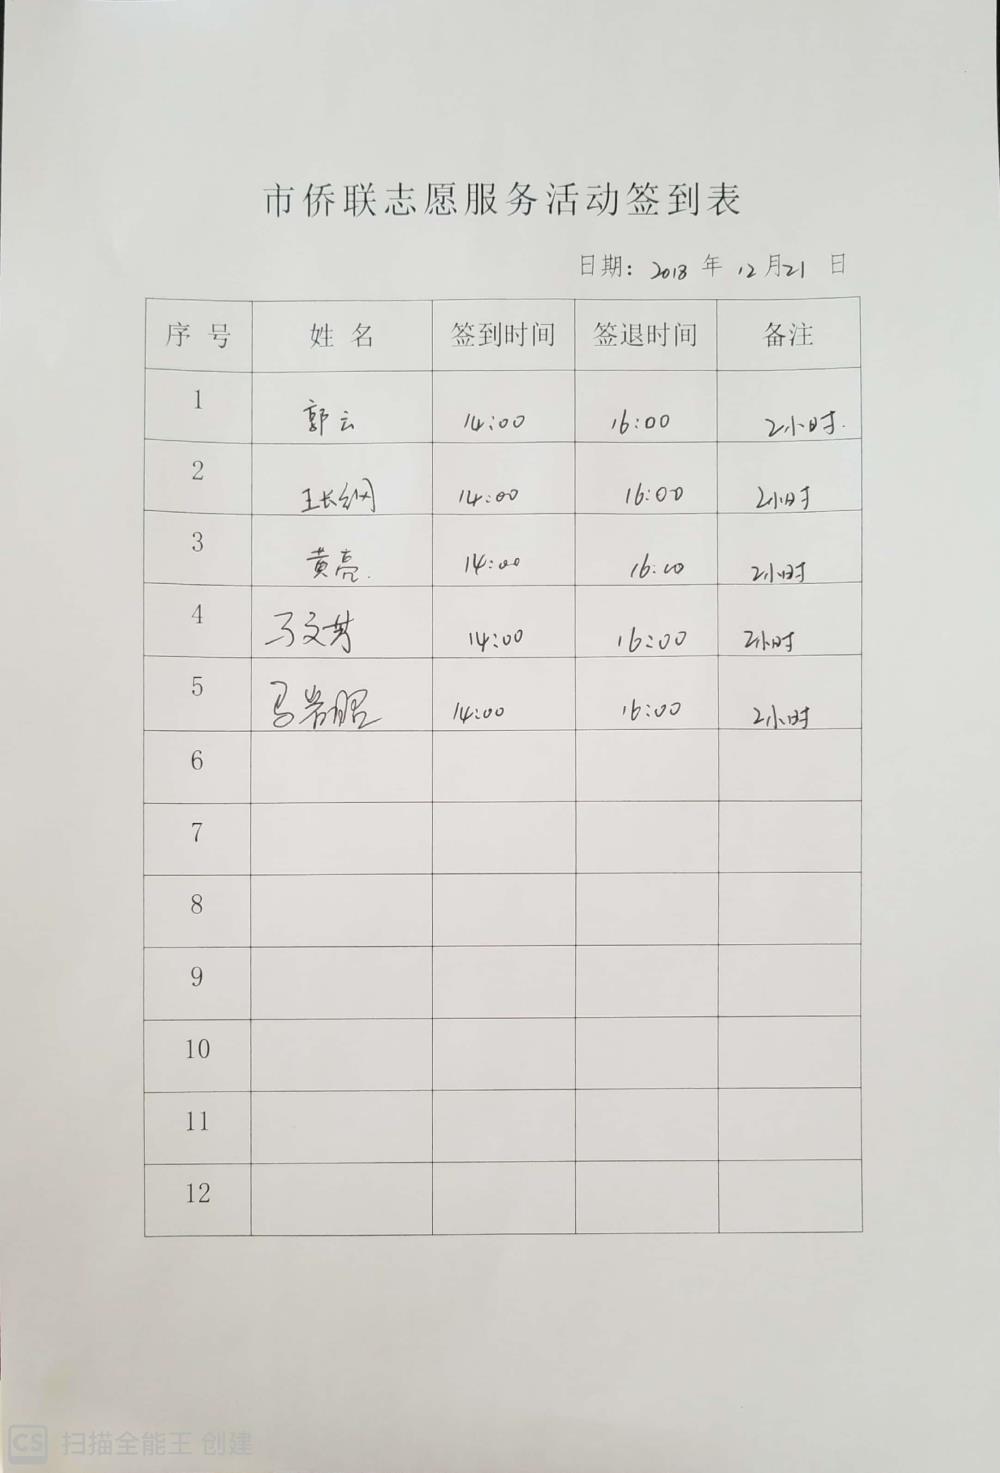 市侨联志愿服务活动签到表
日期：2018 年 12 月 21 日
序 号 姓 名 签到时间 签退时间 备注
1 郭云 14:00 16:00 2小时.
2 王长纲 14:00 16:00 2小时
3 黄亮. 14:00 16:00 2小时
4 马文芳 14:00 16:00 2小时
5 马 14:00 16:00 2小时
6
7
8
9
10
11
12
CS 扫描全能王 创建